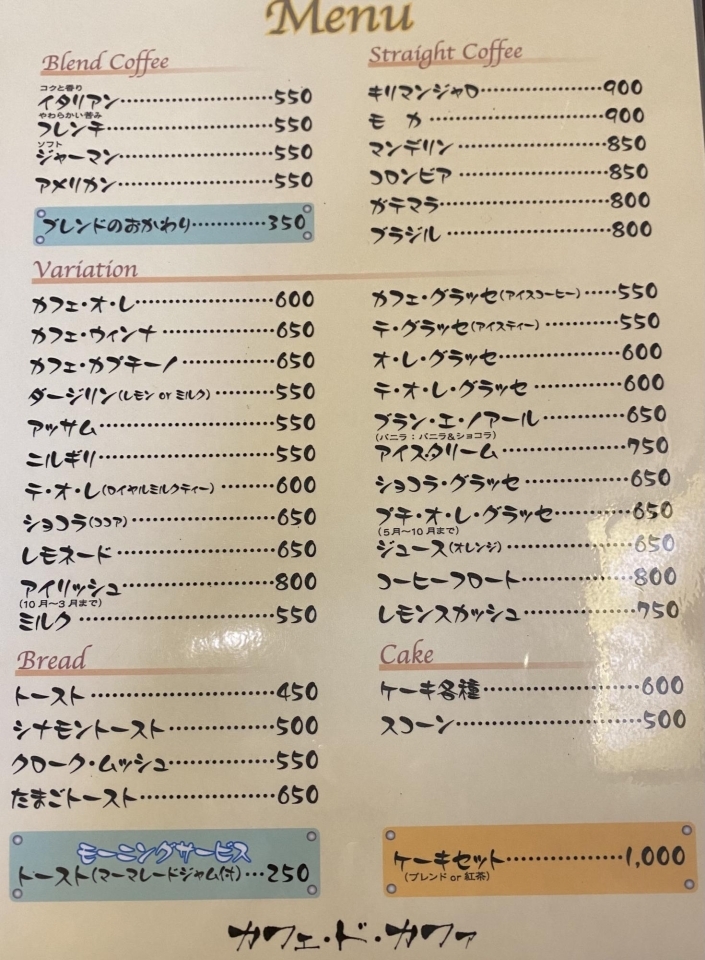 Menu
Blend Coffee
コクと香り
イタリアン…………………550
やわらかい苦み
フレンチ…………………550
ソフト
ジャーマン…………………550
アメリカン…………………550
ブレンドのおかわり…………350
Straight Coffee
キリマンジャロ…………………900
モカ…………………900
マンデリン…………………850
コロンビア…………………850
ガテマラ…………………800
ブラジル…………………800
Variation
カフェ・オ・レ…………………600
カフェ・ウィンナ…………………650
カフェ・カプチーノ…………650
ダージリン(レモン or ミルク)…………550
アッサム…………………550
ニルギリ…………………550
テ・オ・レ(ロイヤルミルクティー)………600
ショコラ(ココア)…………………650
レモネード…………………650
アイリッシュ…………………800
(10月〜3月まで)
ミルク…………………550
カフェ・グラッセ(アイスコーヒー)……550
テ・グラッセ(アイスティー)…………550
オ・レ・グラッセ…………………600
テ・オ・レ・グラッセ…………600
ブラン・エ・ノアール…………650
(バニラ:バニラ&ショコラ)
アイスクリーム…………………750
ショコラ・グラッセ…………………650
プチ・オ・レ・グラッセ…………650
(5月〜10月まで)
ジュース(オレンジ)…………………650
コーヒーフロート…………………800
レモンスカッシュ…………………750
Bread
トースト…………………450
シナモントースト…………………500
クローク・ムッシュ…………………550
たまごトースト…………………650
モーニングサービス
トースト(マーマレードジャム付)…250
Cake
ケーキ各種…………………600
スコーン…………………500
ケーキセット…………………1,000
(ブレンド or 紅茶)
カフェ・ド・カファ